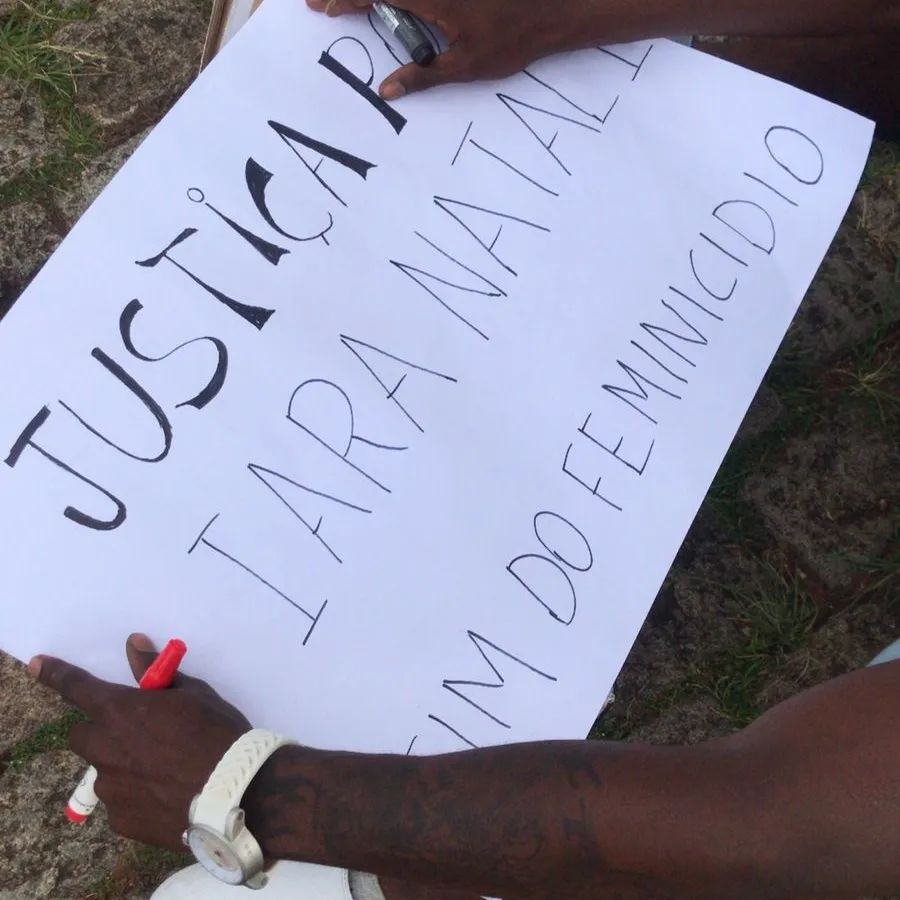 JUSTIÇA P
IARA NATALI
FIM DO FEMINICIDIO